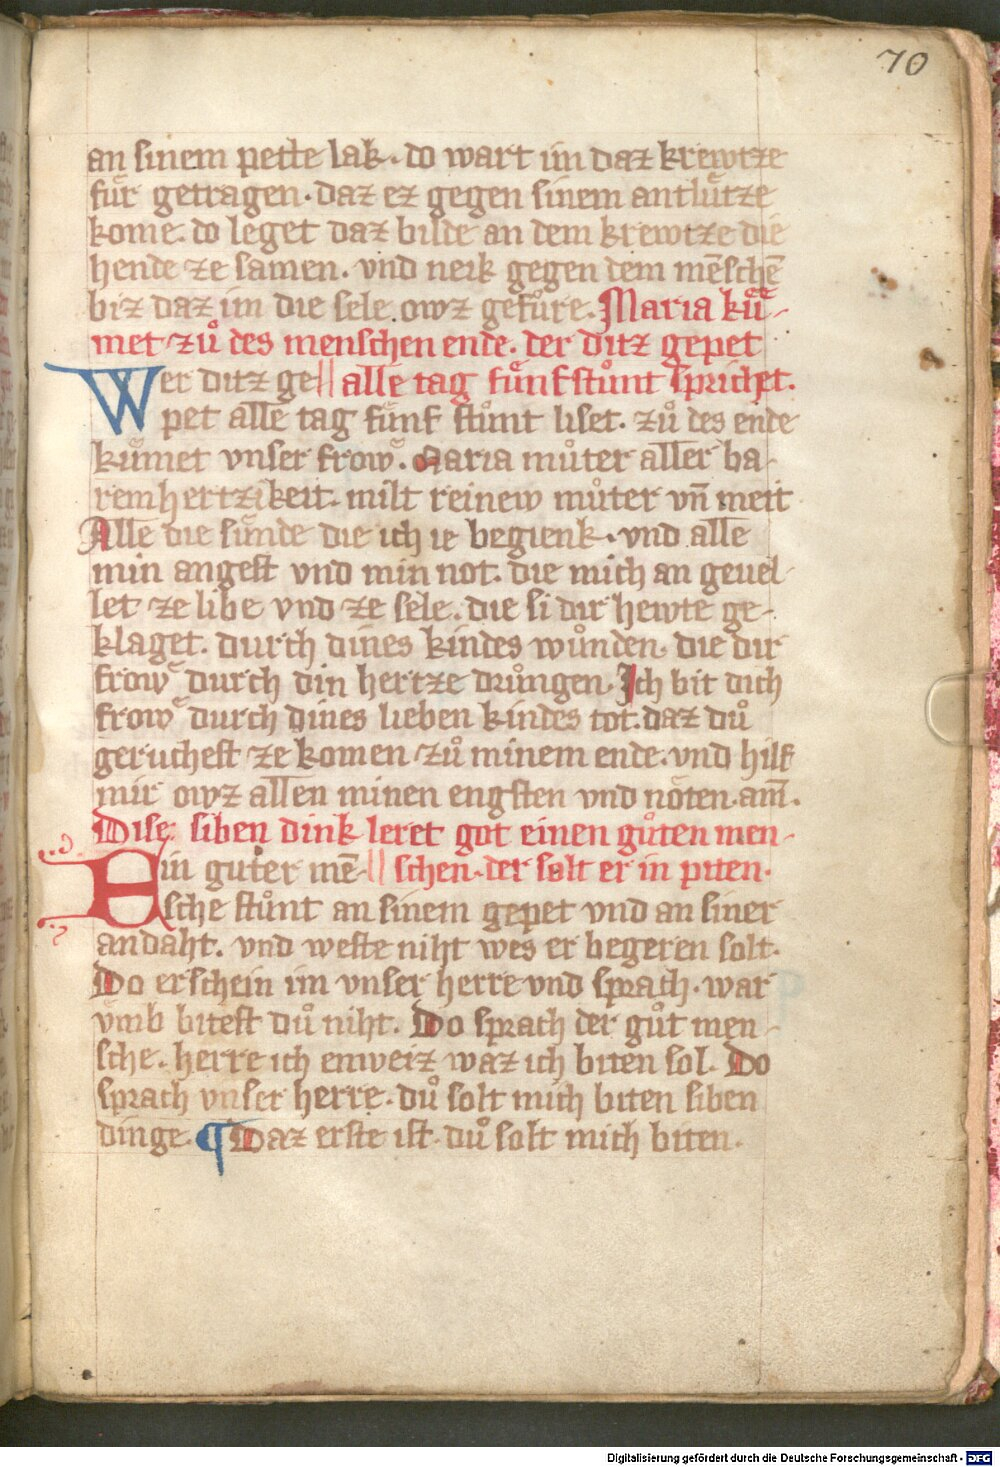 70
an sinem pette lak. do wart im daz krewtze
fuͤr getragen. daz ez gegen sinem antluͤtze
kome. do leget daz bilde an dem krewtze die
hende ze samen. vnd neik gegen dem mēschē
biz daz im die sele owz gefuͦre. Maria kuͤ-
met zuͦ des menschen ende. der ditz gepet
Wer ditz ge- alle tag fuͤnfstuͦnt sprichet.
pet alle tag fuͤnf stuͦnt liset. zuͦ des ende
kuͤmet vnser frow. Maria muͦter aller ba-
remhertzikeit. milt reinew muͦter vn̄ meit
Alle die suͤnde die ich ie begienk. vnd alle
min angest vnd min not. die mich an geuel-
let ze libe vnd ze sele. die si dir hewte ge-
klaget. durch dines kindes wuͦnden. die dir
frow durch din hertze druͦngen. Ich bit dich
frow durch dines lieben kindes tot. daz duͦ
geruchest ze komen zuͦ minem ende. vnd hilf
mir owz allen minen engsten vnd noͤten. am̄.
Dise siben dink leret got einen guͦten men-
Ein guter mē- schen. der solt er in piten.
sche stuͦnt an sinem gepet vnd an siner
andaht. vnd weste niht wes er begeren solt.
Do erschein im vnser herre vnd sprach. war
vmb bitest duͦ niht. Do sprach der guͦt men-
sche. herre ich enweiz waz ich biten sol. Do
sprach vnser herre. duͦ solt mich biten siben
dinge. ¶ Daz erste ist. duͦ solt mich biten.
Digitalisierung gefördert durch die Deutsche Forschungsgemeinschaft - DFG